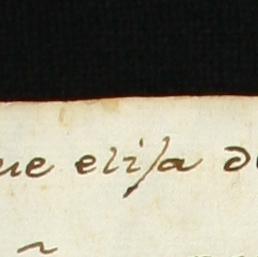 ue eliſa de